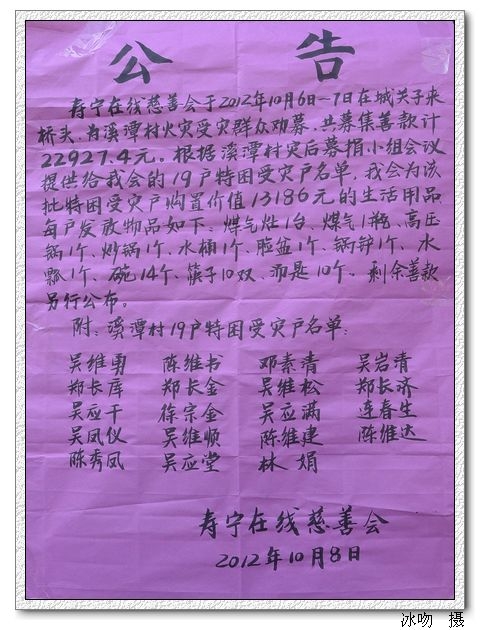 公告
寿宁在线慈善会于2012年10月6日-7日在城关子来
桥头，为溪潭村火灾受灾群众劝募，共募集善款计
22927.4元。根据溪潭村灾后募捐小组会议
提供给我会的19户特困受灾户名单，我会为该
批特困受灾户购置价值13186元的生活用品
每户发放物品如下：煤气灶1台、煤气1瓶、高压
锅1个、炒锅1个、水桶1个、脸盆1个、锅铲1个、水
瓢1个、碗14个、筷子10双、汤匙10个。剩余善款
另行公布。
附：溪潭村19户特困受灾户名单：
吴维勇 陈维书 邓素清 吴岩清
郑长库 郑长金 吴维松 郑长济
吴应干 徐宗金 吴应满 连春生
吴凤仪 吴维顺 陈维建 陈维达
陈秀凤 吴应堂 林娟
寿宁在线慈善会
2012年10月8日
冰吻 摄